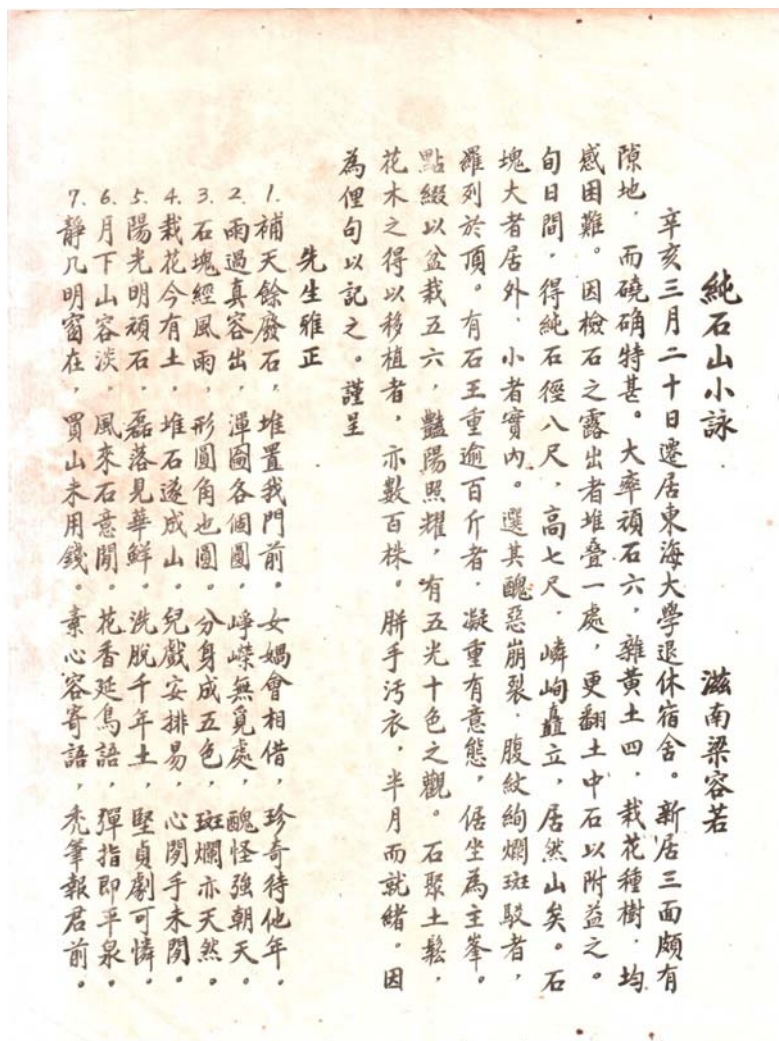 純石山小詠　滋南梁容若
辛亥三月二十日遷居東海大學退休宿舍。新居三面頗有
隙地，而磽确特甚。大率頑石六，雜黃土四，栽花種樹，均
感困難。因檢石之露出者堆叠一處，更翻土中石以附益之。
旬日間，得純石徑八尺，高七尺，嶙峋矗立，居然山矣。石
塊大者居外，小者實內。選其醜惡崩裂，腹紋絢爛斑駁者，
羅列於頂。有石王重逾百斤者，凝重有意態，倨坐為主峯。
點綴以盆栽五六，豔陽照耀，有五光十色之觀。石聚土鬆，
花木之得以移植者，亦數百株。胼手污衣，半月而就緒。因
為俚句以記之。謹呈
先生雅正
1. 補天餘廢石，堆置我門前。女媧會相借，珍奇待他年。
2. 雨過真容出，渾圇各個圓，崢嶸無覓處，醜怪強朝天。
3. 石塊經風雨，形圓角也圓。分身成五色，斑斕亦天然。
4. 栽花今有土，堆石遂成山。兒戲安排易，心閒手未閒。
5. 陽光明頑石，磊落見華鮮。洗脫千年土，堅貞劇可憐。
6. 月下山容淡，風來石意閒。花香延鳥語，彈指即平泉。
7. 靜几明窗在，買山未用錢。素心容寄語，禿筆報君前。